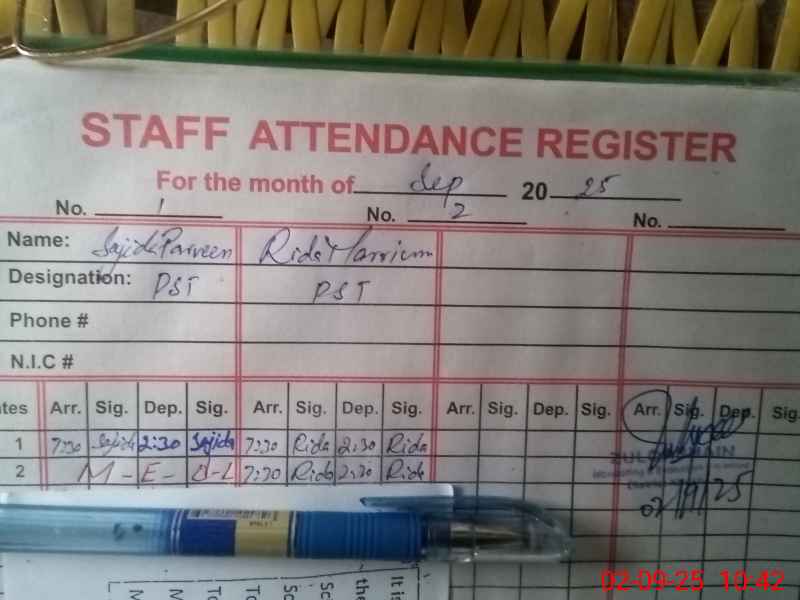 STAFF ATTENDANCE REGISTER
For the month of Sep 2025
No. 1 No. 2 No.
Name: Sajida Parveen Rida Marrium
Designation: PST PST
Phone #
N.I.C #
ates Arr. Sig. Dep. Sig. Arr. Sig. Dep. Sig. Arr. Sig. Dep. Sig. Arr. Sig. Dep. Sig.
1 7:30 Sajida 2:30 Sajida 7:30 Rida 2:30 Rida
2 M-E-D-L 7:30 Rida 2:30 Rida
02/9/25
It is
the
Sc
Sc
To
To
M
M
02-09-25 10:42